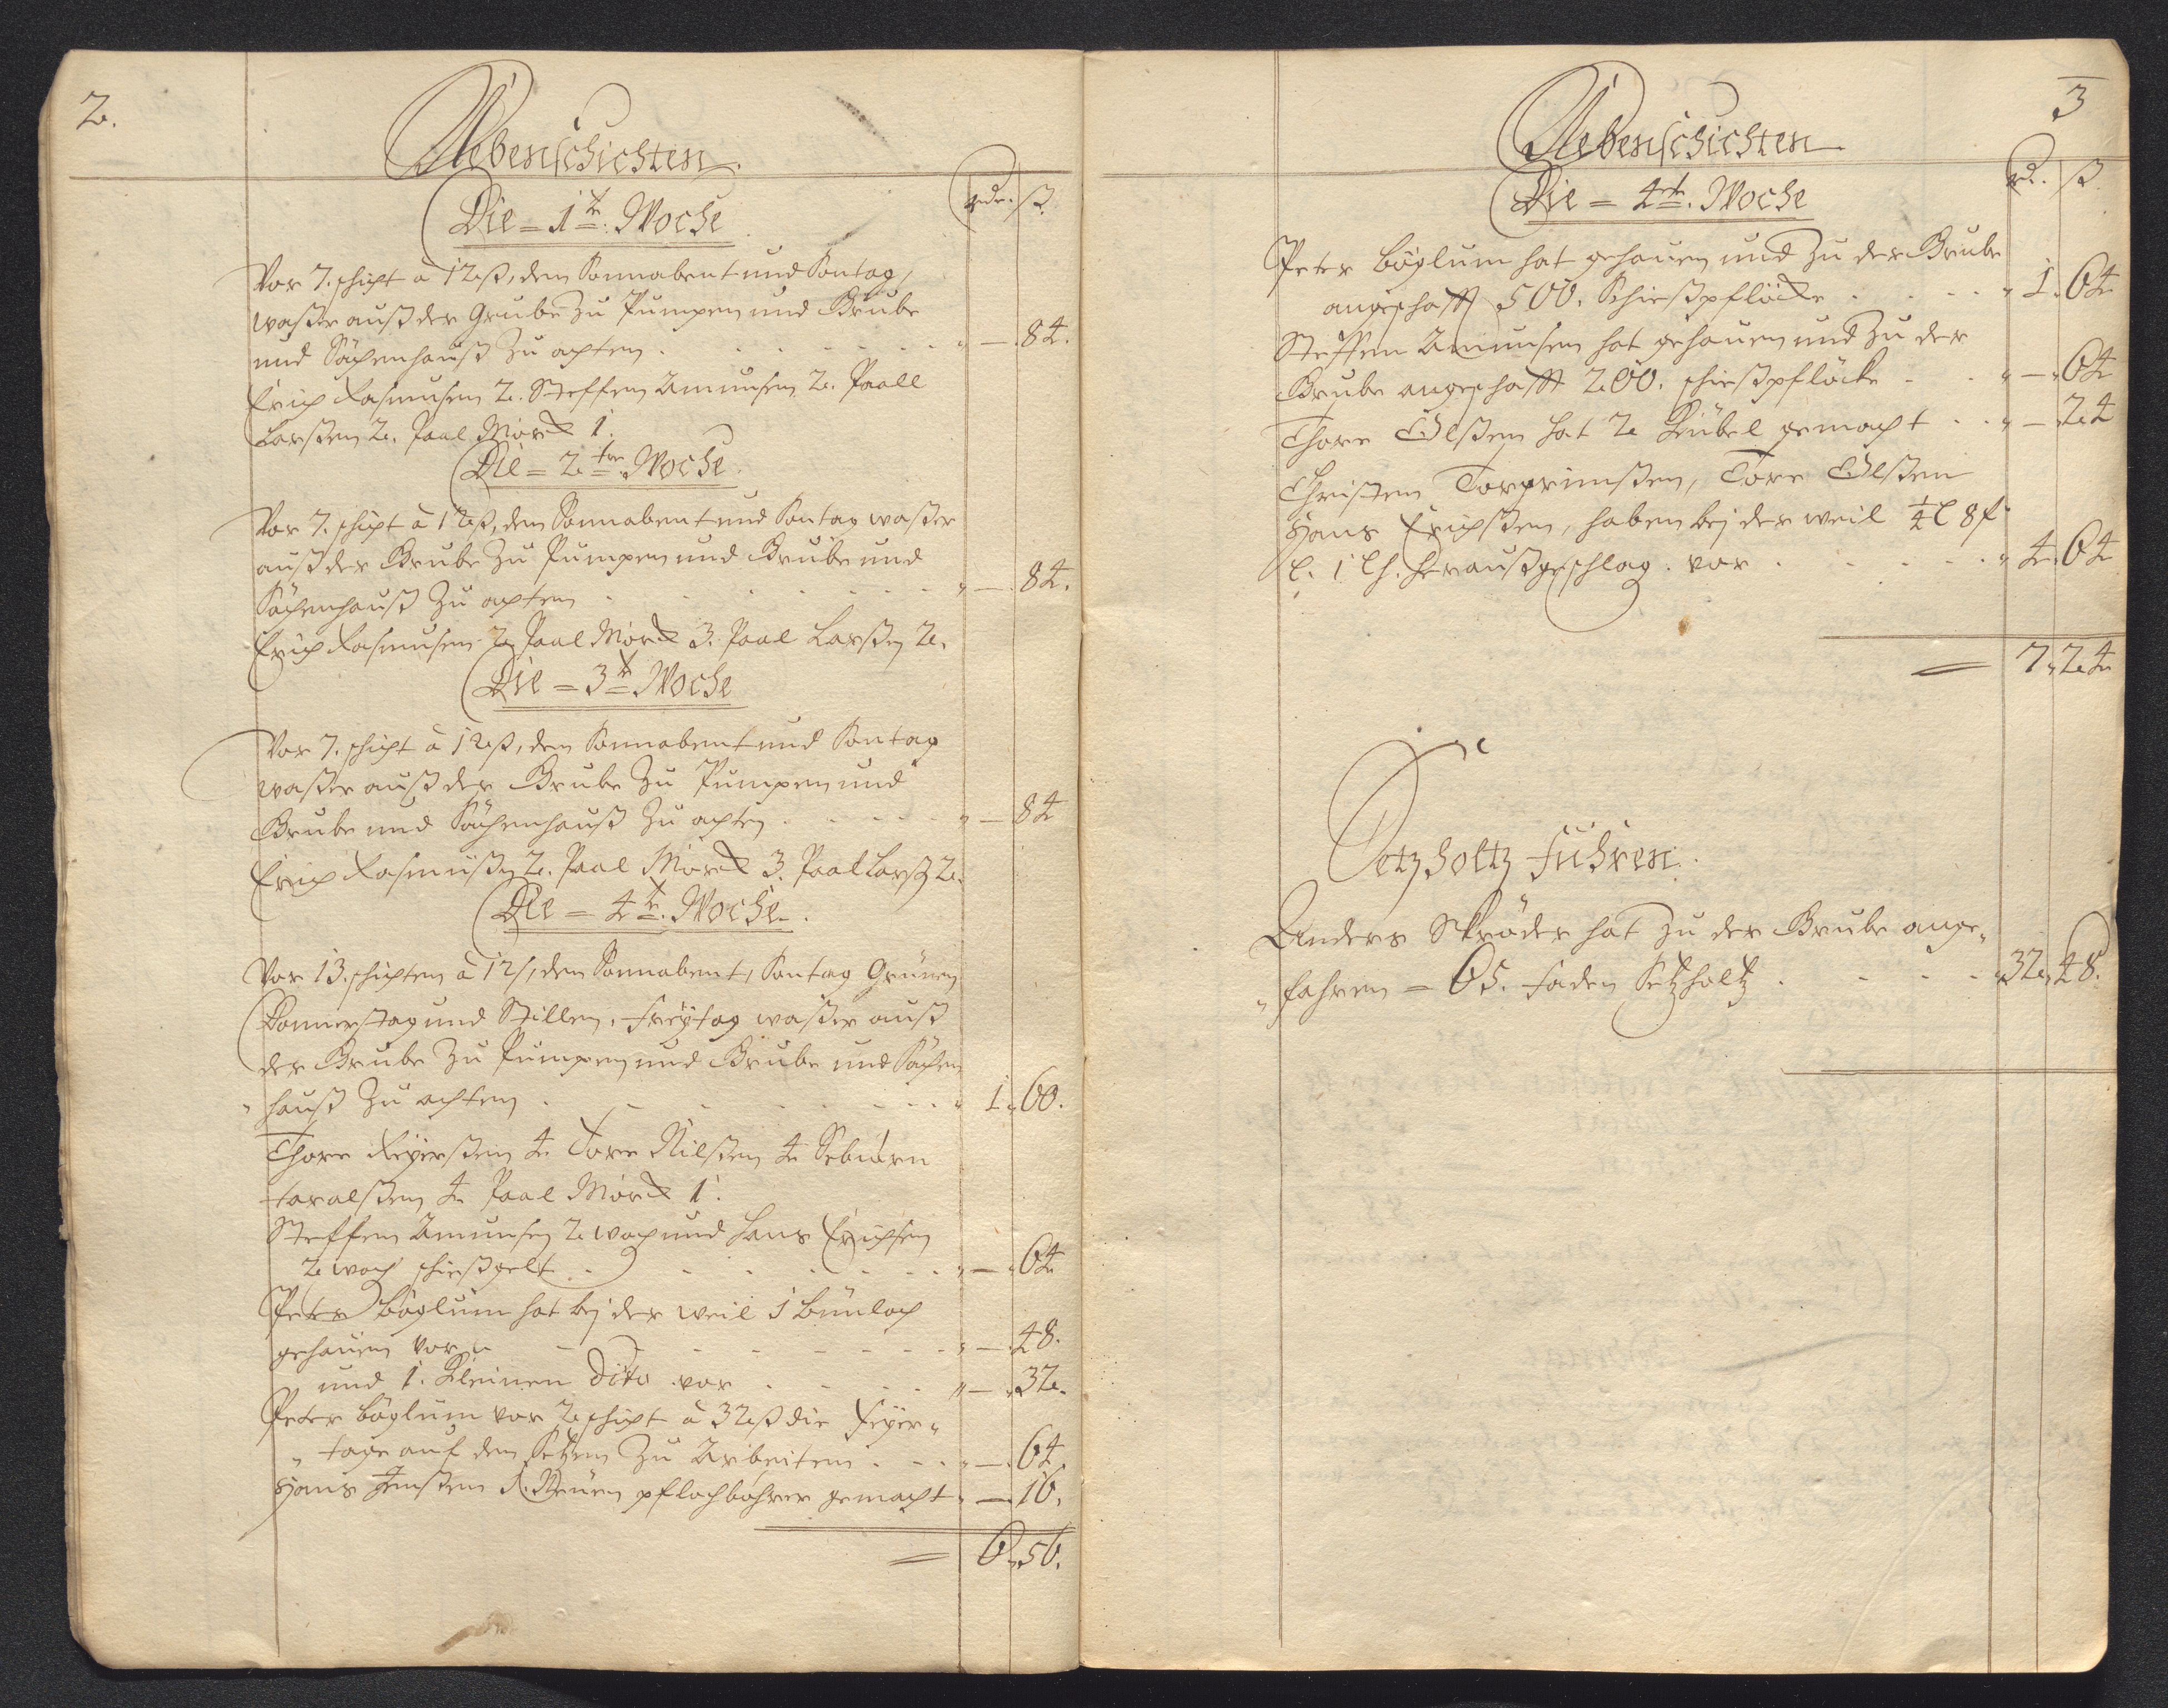 2.
Nebenschichten.
rdr. ß.
Die = 1te. Woche
Vor 7. schicht â 12 ß, den Sonnabent und Sontag,
waßer auß der Grube zu Pumpen und Grube
und Sächenhauß zu achten . . . . . " — . 84.
Erich Rasmusen 2. Steffen Amunsen 2. Paall
Larßen 2. Paal Mörck 1.
Die = 2te. Woche.
Vor 7. schicht â 12 ß, den Sonnabent und Sontag waßer
auß der Grube zu Pumpen und Grube und
Sächenhauß zu achten . . . . . " — . 84.
Erich Rasmusen 2. Paal Mörck 3. Paal Larßen 2.
Die = 3te Woche
Vor 7. schicht â 12 ß, den Sonnabent und Sontag
waßer auß der Grube zu Pumpen und
Grube und Sächenhauß zu achten . . . . " — 84
Erich Rasmußen 2. Paal Mörck 3. Paal Larß 2.
Die = 4te. Woche.
Vor 13. schichten â 12 ß, den Sonnabent, Sontag Grünen
Donnerstag und Stillen. Freÿtag waßer auß
der Grube zu Pumpen und Grube und Sächen
" hauß zu achten . . . . . " 1 " 60.
Thore Reÿerßen 4 Tore Nilßen 4 Sebiörn
taralßen 4 Paal Mörck 1.
Steffen Amunsen 2 woch und Hans Erichsen
2 woch schießgelt . . . . . " — " 64
Peter Böglum hat beÿ der weil 1 Bünloch
gehauen vor . . . . . " — 48.
und 1. Kleinen dito vor . . . . " — " 32.
Peter Böglum vor 2 schicht â 32 ß die Feÿer„
„ tage auf den Setzen zu Arbeiten . . . " — . 64.
Hans Jenßen 1. Neuen pflochbohrer gemacht " — 16.
= 6 " 56.
3
Nebenschichten
rd. ß.
Die = 4te. Woche
Peter Böglum hat gehauen und zu der Grube
angeschafft 500. Schießpflöcke . . . " 1 . 64
Steffen Amunsen hat gehauen und zu der
Grube angeschafft 200. schießpflöcke . . " — " 64
Thore Olßen hat 2 Kübel gemacht . . " — 24
Christen Torgrimßen, Tore Olßen
Hans Erichßen, haben beÿ der weil ¼ l 8 f
l. 1 lh. heraußgeschlag. vor . . . . " 4 . 64
= 7 " 24
Setzholtz Führen.
Anders Skröder hat zu der Grube ange„
„ fahren = 65. Faden Setzholtz . . . . " 32 " 48.